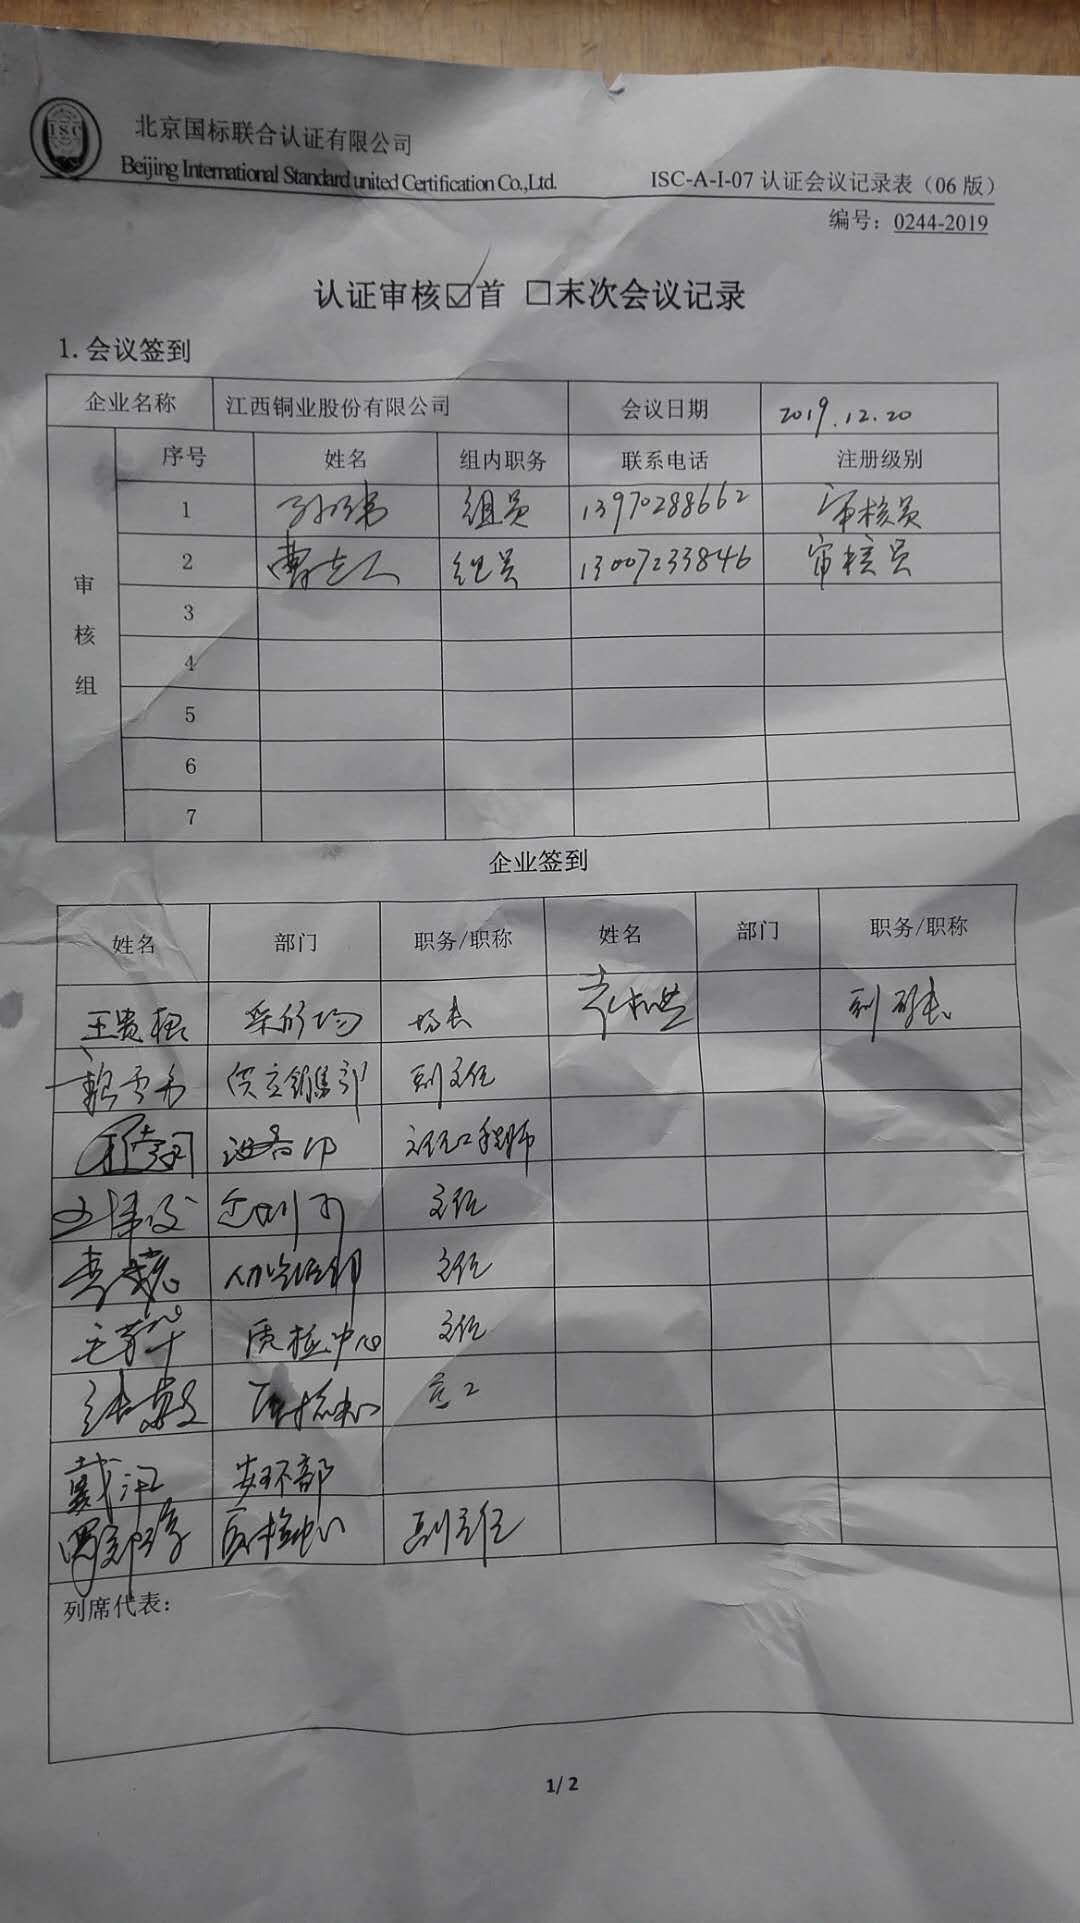 ISC
北京国标联合认证有限公司
Beijing International Standard united Certification Co.,Ltd.
ISC-A-I-07 认证会议记录表（06 版）
编号：0244-2019
认证审核☑首 □末次会议记录
1. 会议签到
企业名称 江西铜业股份有限公司 会议日期 2019.12.20
审核组
序号 姓名 组内职务 联系电话 注册级别
1 组员 13970288662 审核员
2 组员 13007233846 审核员
3
4
5
6
7
企业签到
姓名 部门 职务/职称 姓名 部门 职务/职称
王贵根 场长 副
供应销售部 副主任
设备部 主任工程师
主任
李 人力资源部 主任
毛 质检中心 主任
张 质检中心
戴 安环部
质检中心 副主任
列席代表：
1/ 2